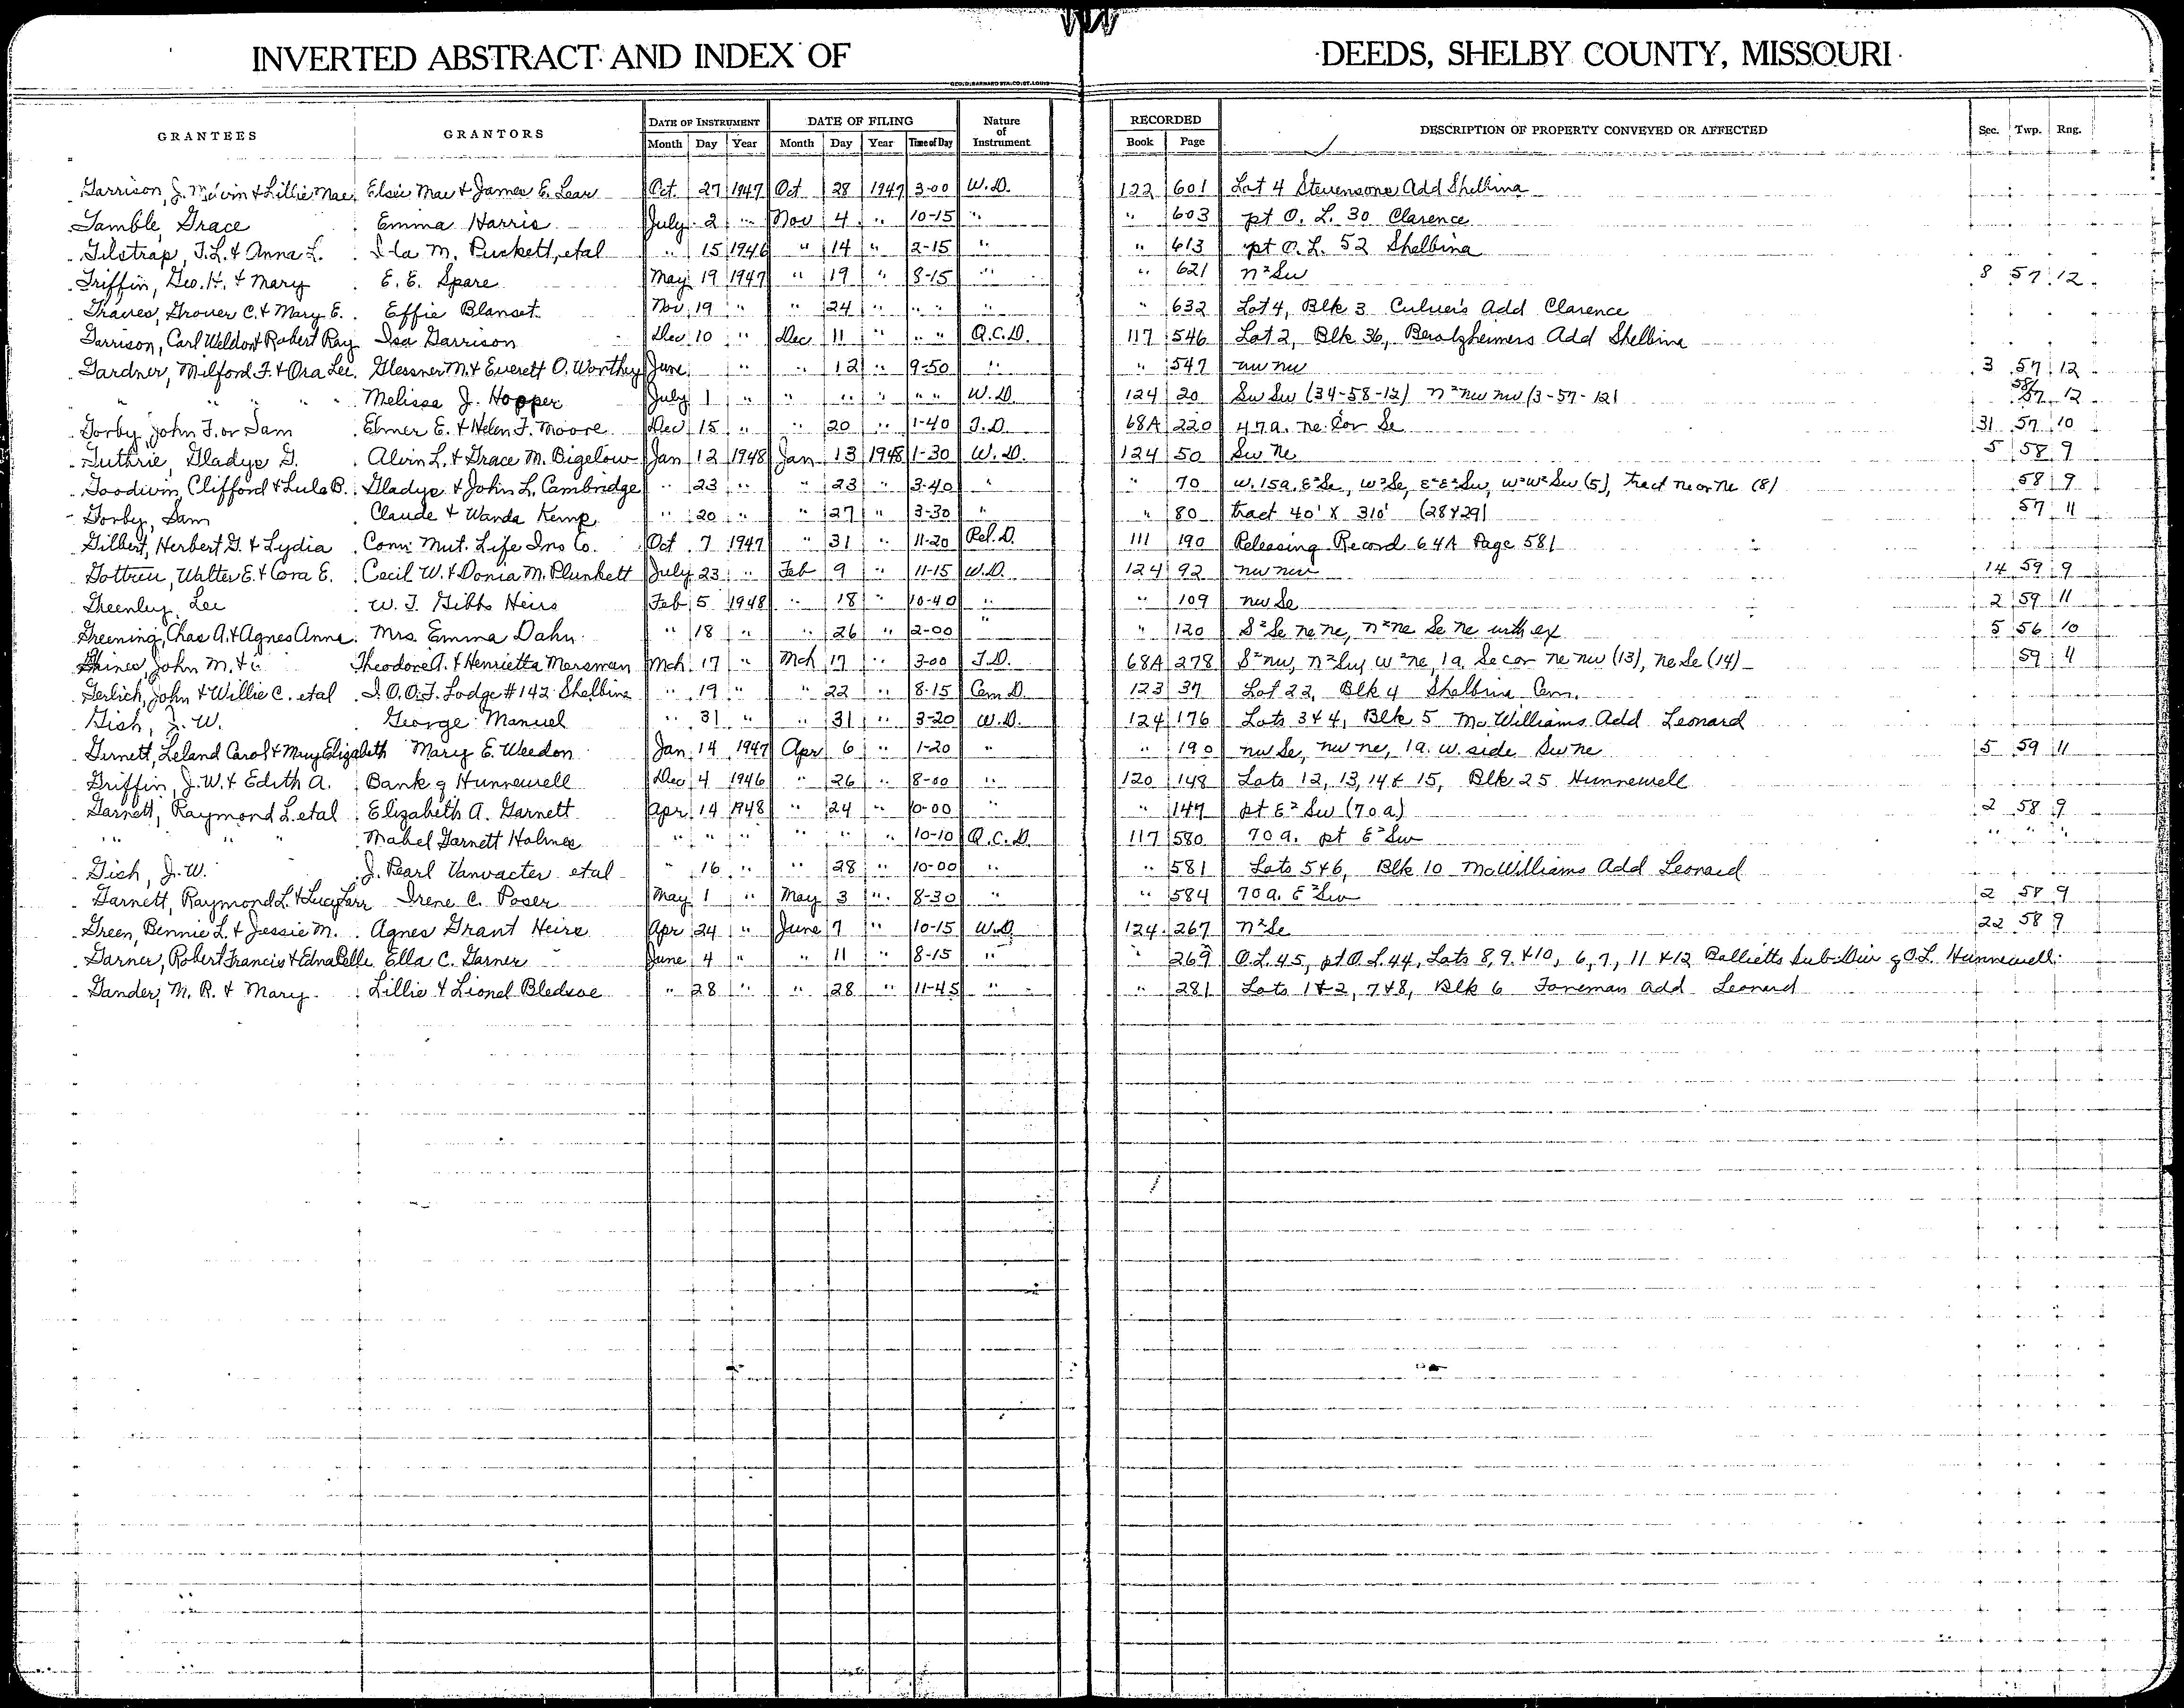 INVERTED ABSTRACT AND INDEX OF DEEDS, SHELBY COUNTY, MISSOURI
GRANTEES GRANTORS DATE OF INSTRUMENT DATE OF FILING Nature of Instrument RECORDED DESCRIPTION OF PROPERTY CONVEYED OR AFFECTED Sec. Twp. Rng.
Month Day Year Month Day Year Time of Day Book Page
Garrison, J. Melvin & Lillie Mae Elsie Mae & James E. Lear Oct. 27 1947 Oct 28 1947 3-00 W.D. 122 601 Lot 4 Stevensons Add Shelbina
Gamble, Grace Emma Harris July 2 " Nov 4 " 10-15 " " 603 pt O. L. 30 Clarence
Gilstrap, T.L. & Anna L. Ida M. Puckett, etal " 15 1946 " 14 " 2-15 " " 613 pt O. L. 52 Shelbina
Griffin, Geo. H. & Mary E. E. Spare May 19 1947 " 19 " 8-15 " " 621 n²Sw 8 57 12
Graves, Grover C. & Mary E. Effie Blanset Nov 19 " " 24 " " " " 632 Lot 4, Blk 3 Culver's Add Clarence
Garrison, Carl Weldon & Robert Ray Isa Garrison Dec 10 " Dec 11 " " " Q.C.D. 117 546 Lot 2, Blk 36, Berolzheimers Add Shelbina
Gardner, Milford F. & Ora Lee Glessner M. & Everett O. Worthey June " " 12 " 9-50 " " 547 nw nw 3 57 12
" " " " Melissa J. Hopper July 1 " " " " " " W.D. 124 20 Sw Sw (34-58-12) n²nw nw (3-57-12) 58/57 12
Gorby, John F. or Sam Elmer E. & Helen F. Moore Dec 15 " " 20 " 1-40 T.D. 68A 220 47a. ne. Cor Se 31 57 10
Guthrie, Gladys G. Alvin L. & Grace M. Bigelow Jan 12 1948 Jan 13 1948 1-30 W.D. 124 50 Sw Ne 5 58 9
Goodwin, Clifford & Lula B. Gladys & John L. Cambridge " 23 " " 23 " 3-40 " " 70 w. 15a. E²Se, W²Se, E²E²Sw, W²W²Sw (5), tract ne cor ne (8) 58 9
Gorby, Sam Claude & Wanda Kemp " 20 " " 27 " 3-30 " " 80 tract 40' X 310' (28&29) 57 11
Gilbert, Herbert G. & Lydia Conn. Mut. Life Ins Co. Oct 7 1947 " 31 " 11-20 Rel. D. 111 190 Releasing Record 64A Page 581
Gottreu, Walter E. & Cora E. Cecil W. & Donia M. Plunkett July 23 " Feb 9 " 11-15 W.D. 124 92 nw nw 14 59 9
Greenley, Lee W. T. Gibbs Heirs Feb 5 1948 " 18 " 10-40 " " 109 nw Se 2 59 11
Greening, Chas A. & Agnes Anna Mrs. Emma Dahn " 18 " " 26 " 2-00 " " 120 S²Se ne ne, n²ne Se ne with ex 5 56 10
John M. & Theodore A. & Henrietta Mersman Mch 17 " Mch 17 " 3-00 T.D. 68A 278 S²nw, n²Sw, w²ne, 1a Se cor ne nw (13), ne Se (14) 59 11
Gerlich, John & Willie C. etal I.O.O.F. Lodge #142 Shelbina " 19 " " 22 " 8-15 Cem D. 123 37 Lot 22, Blk 4 Shelbina Cem.
Gish, J. W. George Manuel " 31 " " 31 " 3-20 W.D. 124 176 Lots 3 & 4, Blk 5 McWilliams Add Leonard
Girnett, Leland Carol & Mary Elizabeth Mary E. Weedon Jan 14 1947 Apr 6 " 1-20 " " 190 nw Se, nw ne, 1a. w. side Sw ne 5 59 11
Griffin, J.W. & Edith A. Bank of Hunnewell Dec 4 1946 " 26 " 8-00 " 120 148 Lots 12, 13, 14 & 15, Blk 25 Hunnewell
Garnett, Raymond L. etal Elizabeth A. Garnett Apr 14 1948 " 24 " 10-00 " " 147 pt E² Sw (70 a) 2 58 9
" " Mabel Garnett Holmes " " " " " " 10-10 Q.C.D. 117 580 70 a. pt E²Sw " " "
Gish, J.W. J. Pearl Vanvacter etal " 16 " " 28 " 10-00 " " 581 Lots 5 & 6, Blk 10 McWilliams Add Leonard
Garnett, Raymond L. & Lucy Irene C. Poser May 1 " May 3 " 8-30 " " 584 70 a. E²Sw 2 58 9
Green, Bennie L. & Jessie M. Agnes Grant Heirs Apr 24 " June 7 " 10-15 W.D. 124 267 n²Se 22 58 9
Garner, Robert Francis & Edna Belle Ella C. Garner June 4 " " 11 " 8-15 " " 269 O.L. 45, pt O.L. 44, Lots 8, 9, & 10, 6, 7, 11 & 12 Sub-Div of O.L. Hunnewell
Gander, M. R. & Mary Lillie & Lionel Bledsoe " 28 " " 28 " 11-45 " " 281 Lots 1 & 2, 7 & 8, Blk 6 Foreman Add Leonard